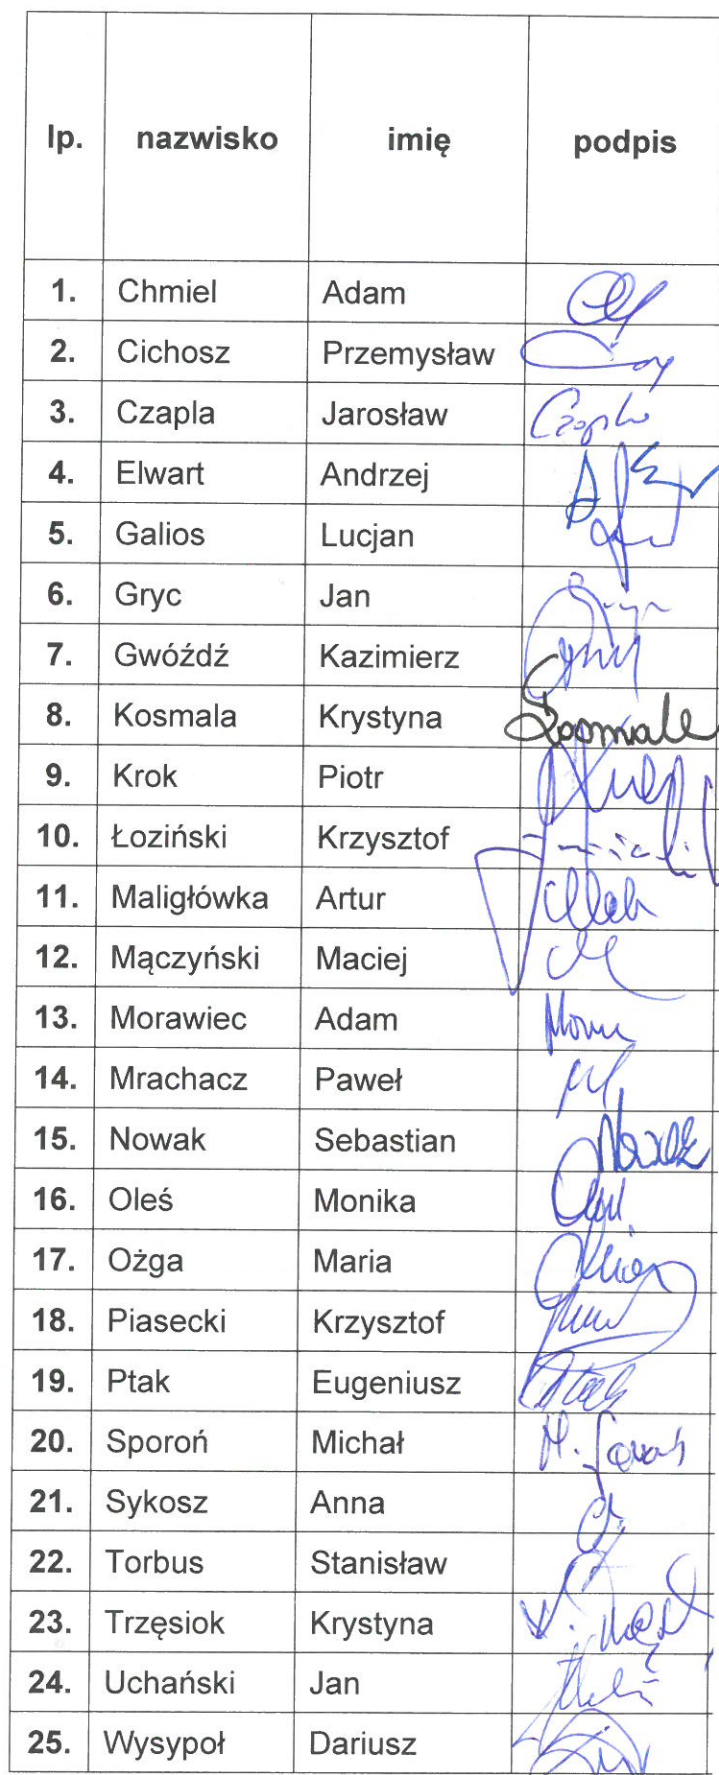 lp. nazwisko imię podpis
1. Chmiel Adam
2. Cichosz Przemysław
3. Czapla Jarosław Czapla
4. Elwart Andrzej
5. Galios Lucjan
6. Gryc Jan
7. Gwóźdź Kazimierz
8. Kosmala Krystyna Kosmala
9. Krok Piotr
10. Łoziński Krzysztof
11. Maligłówka Artur
12. Mączyński Maciej
13. Morawiec Adam
14. Mrachacz Paweł
15. Nowak Sebastian Nowak
16. Oleś Monika
17. Ożga Maria
18. Piasecki Krzysztof
19. Ptak Eugeniusz Ptak
20. Sporoń Michał
21. Sykosz Anna
22. Torbus Stanisław
23. Trzęsiok Krystyna
24. Uchański Jan
25. Wysypoł Dariusz